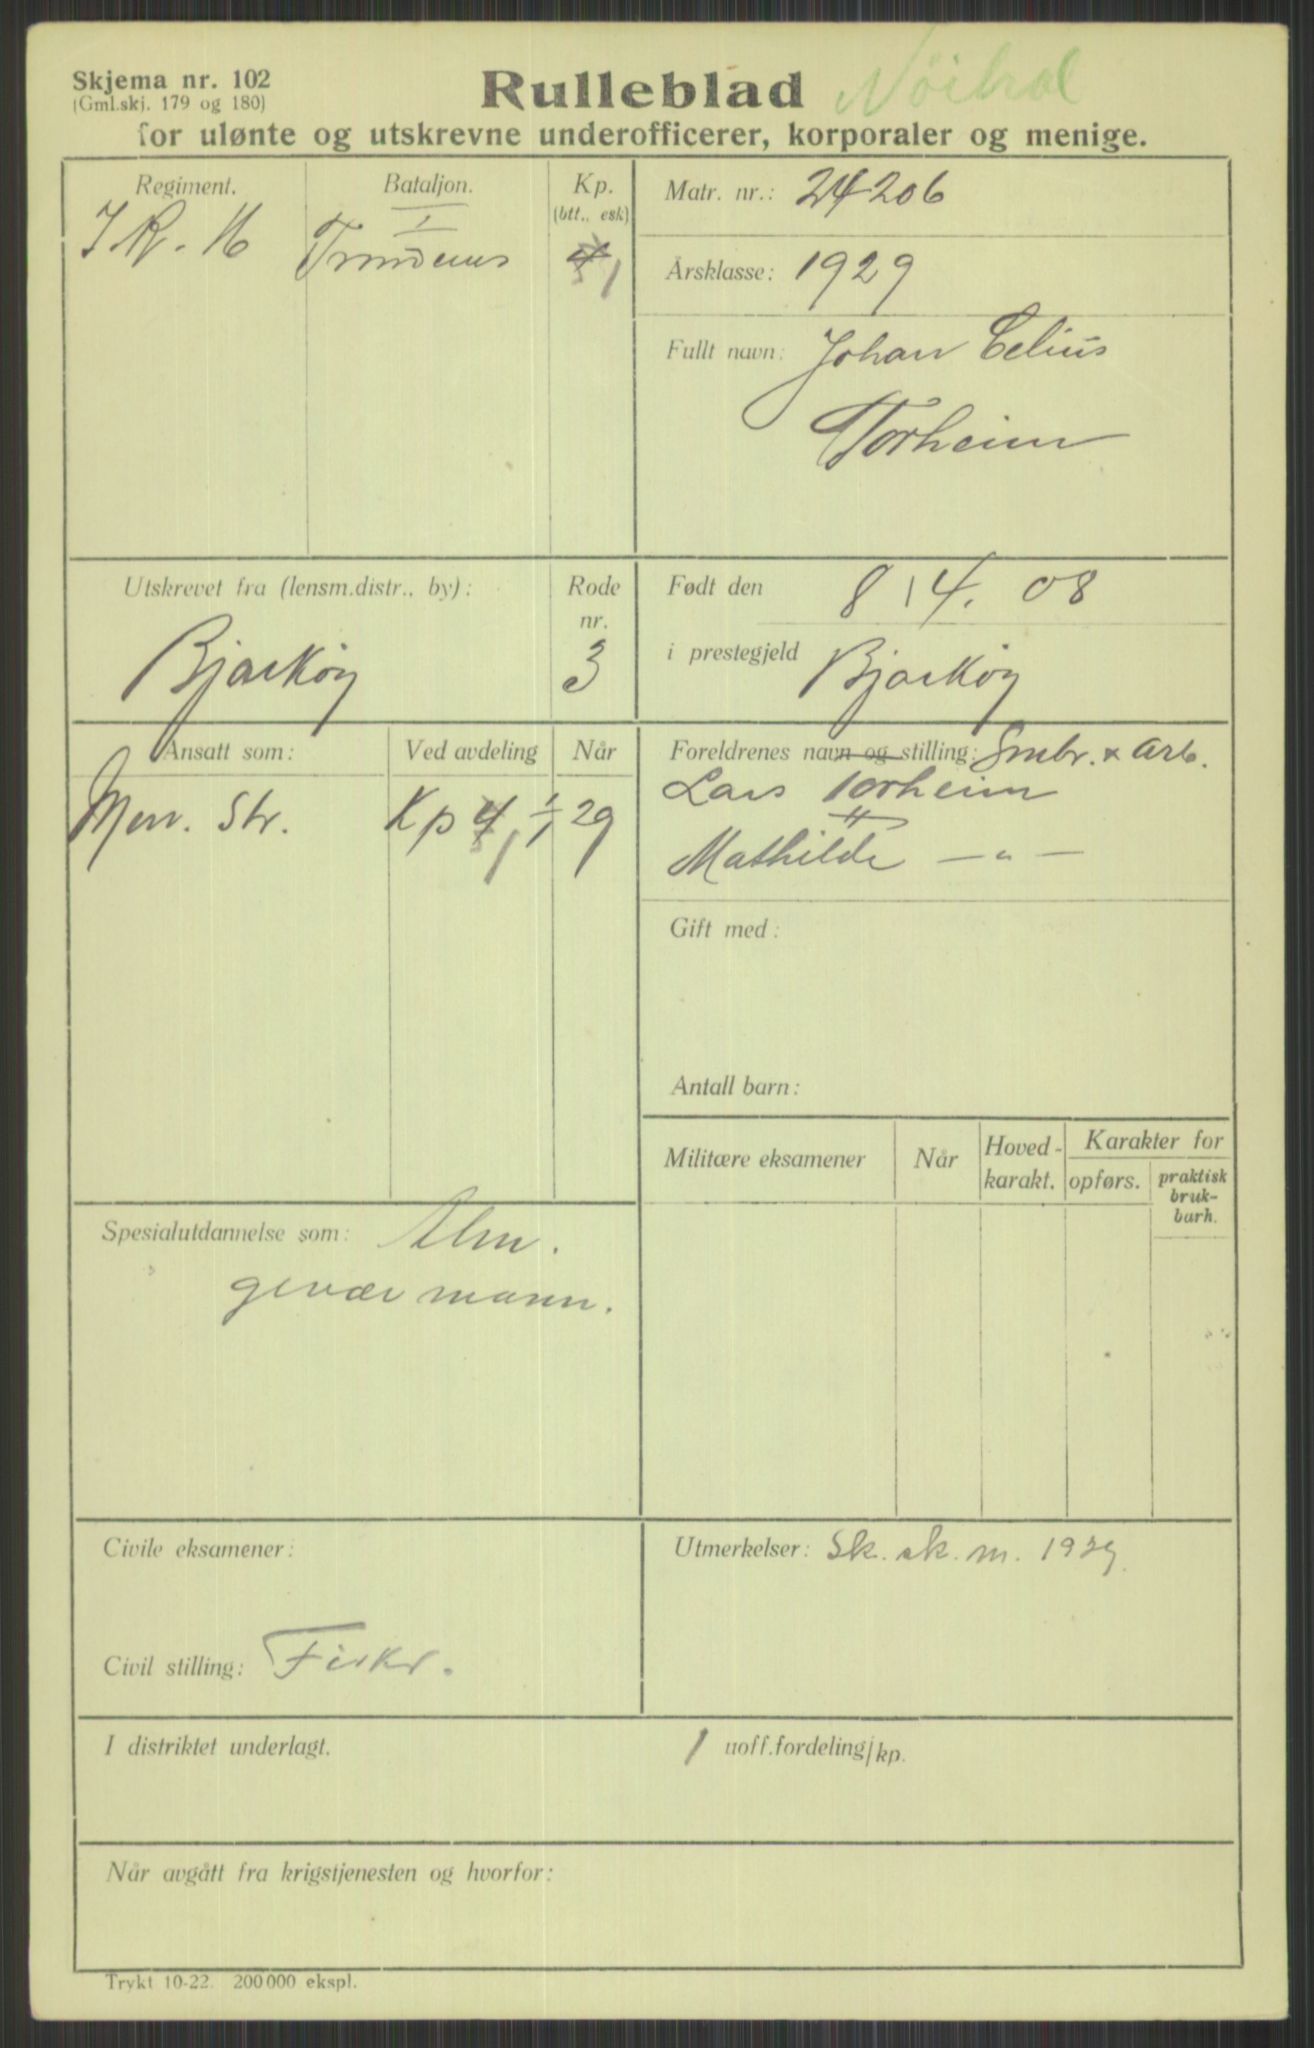 Skjema nr. 102
(Gml.skj. 179 og 180)
Rulleblad Nöitral
for ulønte og utskrevne underofficerer, korporaler og menige.
Regiment. Bataljon. Kp. (btt., esk)
I R. 16 I 4 1
Matr. nr.: 24206
Årsklasse: 1929
Fullt navn: Johan Celius
Torheim
Utskrevet fra (lensm.distr., by): Rode nr.
Bjarköy 3
Født den 8/4. 08
i prestegjeld Bjarköy
Ansatt som: Ved avdeling Når
Men. Str. Kp 4 1 1/1 29
Foreldrenes navn og stilling: Smbr. x Arb.
Lars Torheim
Mathilde — " —
Gift med:
Antall barn:
Militære eksamener Når Hoved-karakt. Karakter for
opførs. praktisk bruk-barh.
Spesialutdannelse som: Alm.
gevær mann.
Civile eksamener:
Civil stilling: Fisker.
Utmerkelser: Sk. sk. m. 1929.
I distriktet underlagt. 1 uoff.fordeling/kp.
Når avgått fra krigstjenesten og hvorfor:
Trykt 10-22. 200 000 ekspl.